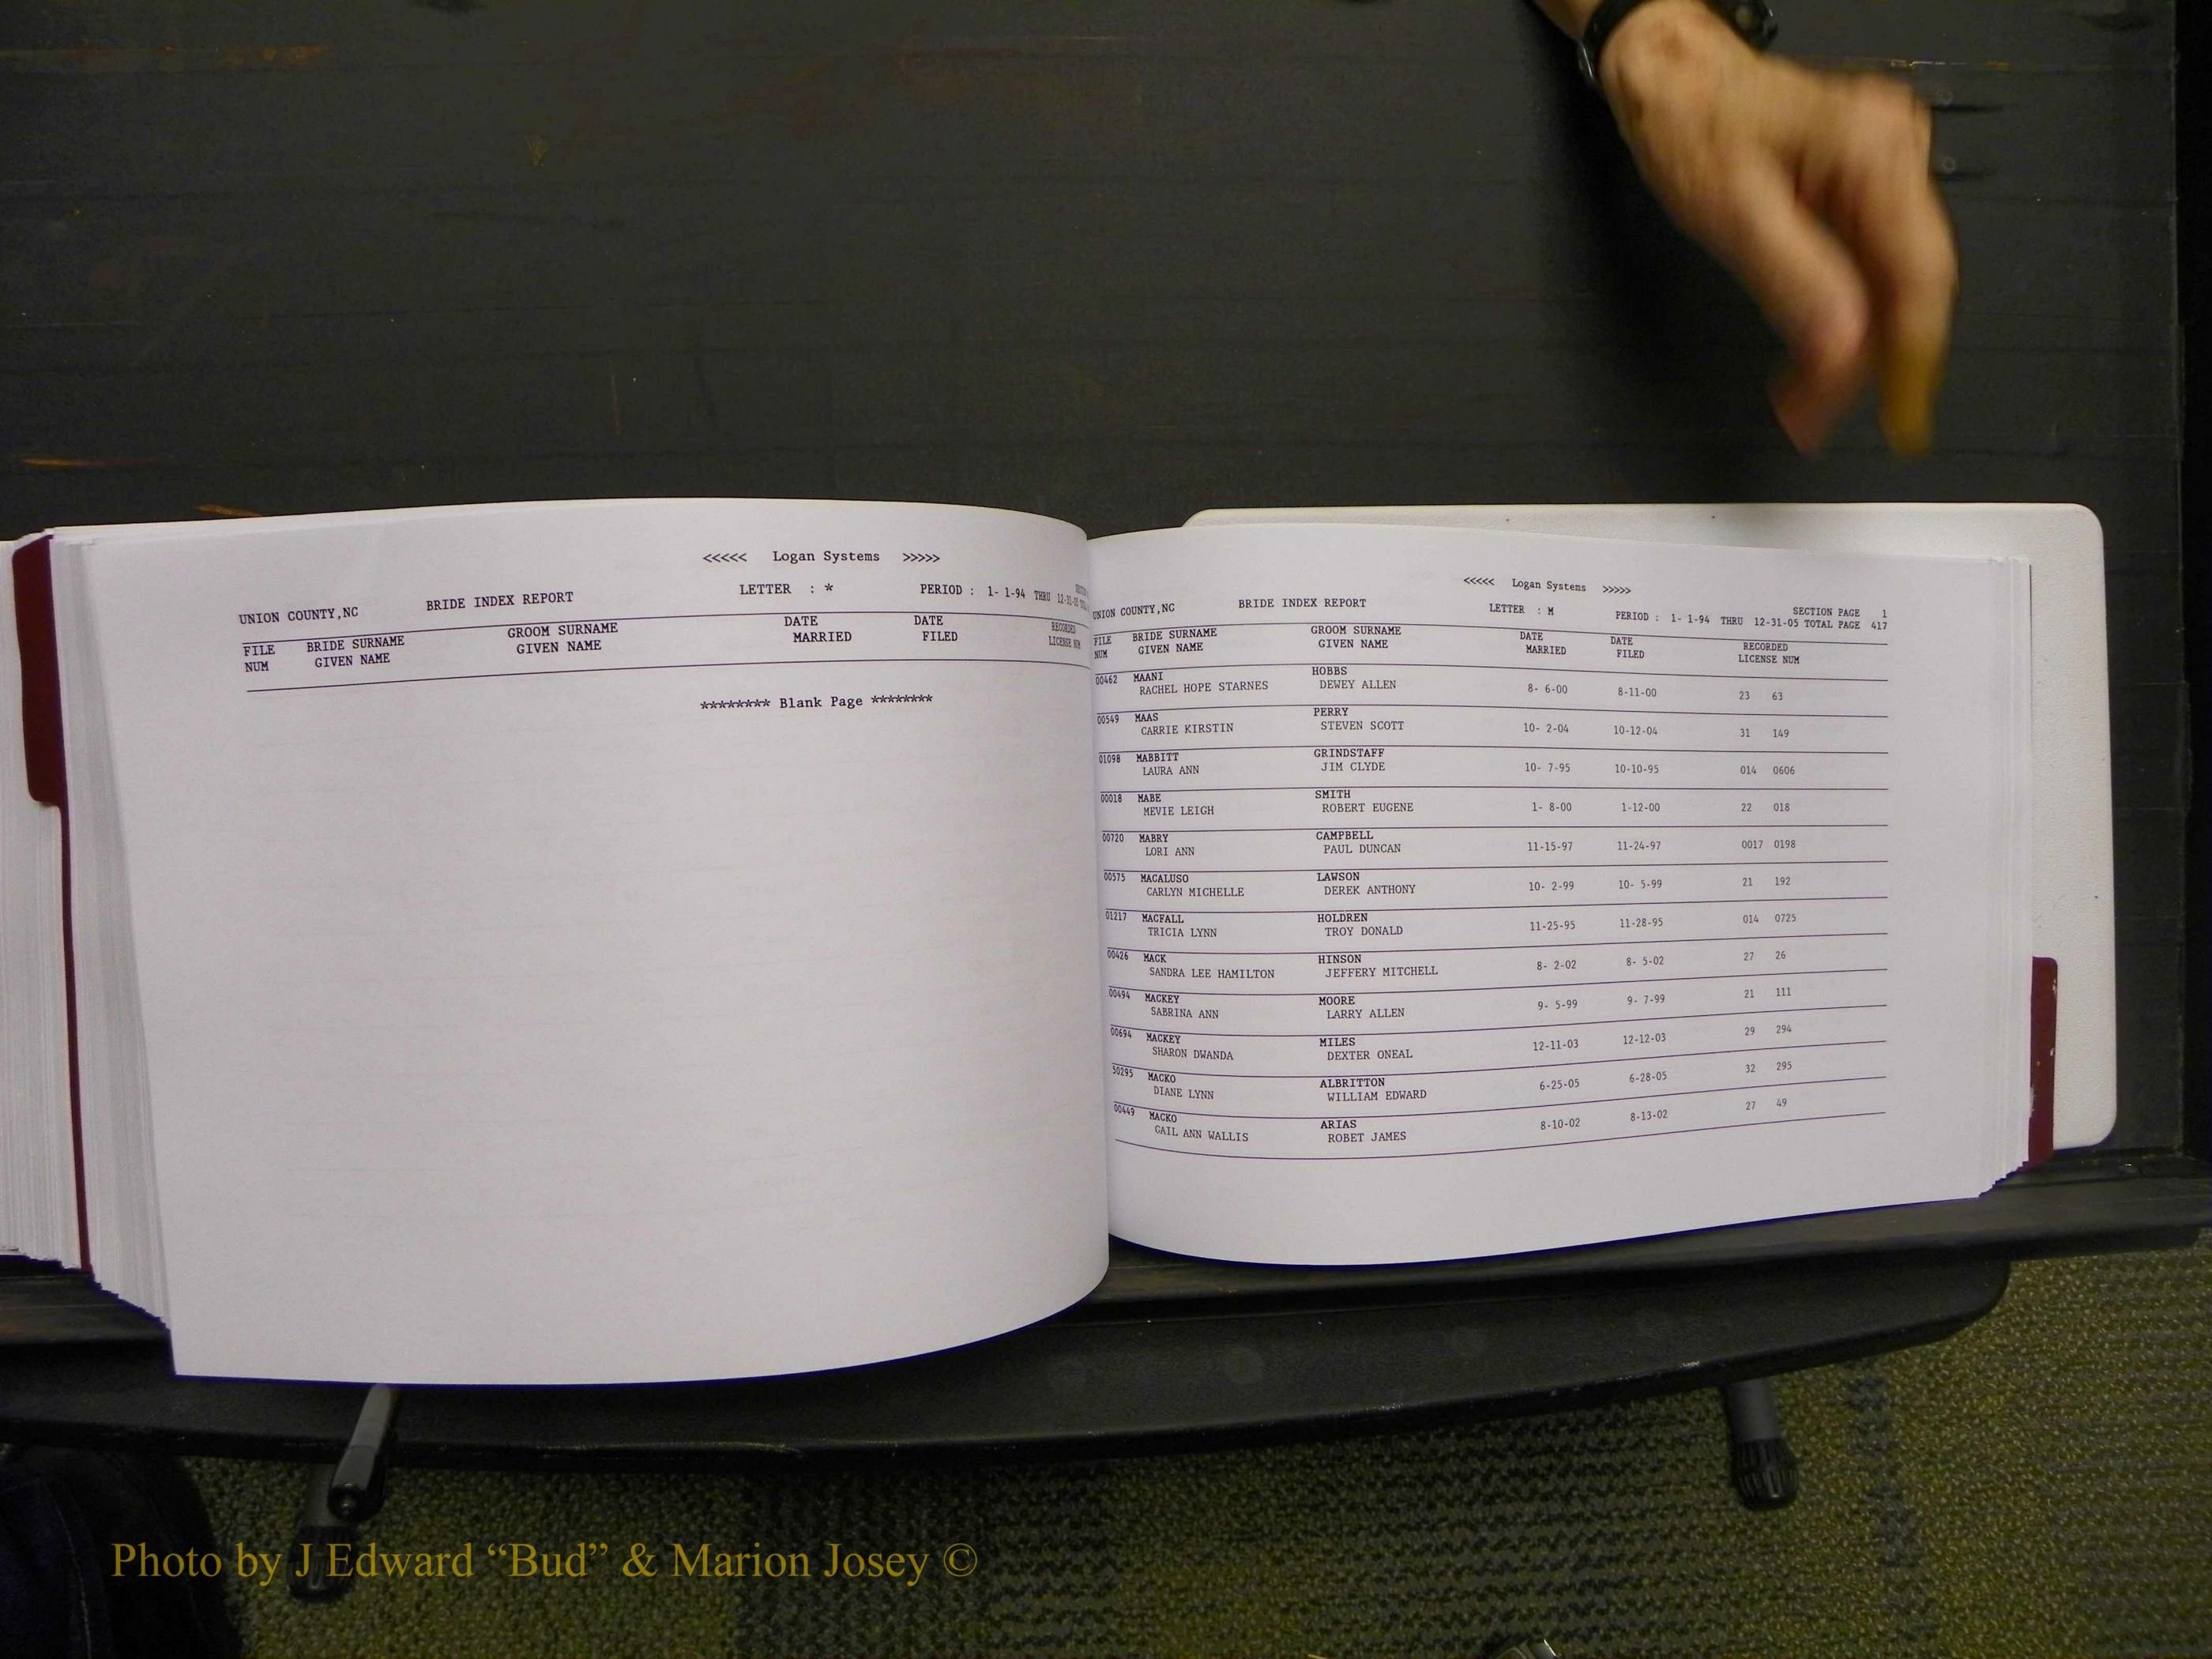 <<<<< Logan Systems >>>>>
UNION COUNTY,NC BRIDE INDEX REPORT LETTER : * PERIOD : 1- 1-94 THRU
FILE BRIDE SURNAME GROOM SURNAME DATE DATE RECORDED
NUM GIVEN NAME GIVEN NAME MARRIED FILED LICENSE NUM
******** Blank Page ********
<<<<< Logan Systems >>>>>
SECTION PAGE 1
UNION COUNTY,NC BRIDE INDEX REPORT LETTER : M PERIOD : 1- 1-94 THRU 12-31-05 TOTAL PAGE 417
FILE BRIDE SURNAME GROOM SURNAME DATE DATE RECORDED
NUM GIVEN NAME GIVEN NAME MARRIED FILED LICENSE NUM
00462 MAANI HOBBS
RACHEL HOPE STARNES DEWEY ALLEN 8- 6-00 8-11-00 23 63
00549 MAAS PERRY
CARRIE KIRSTIN STEVEN SCOTT 10- 2-04 10-12-04 31 149
01098 MABBITT GRINDSTAFF
LAURA ANN JIM CLYDE 10- 7-95 10-10-95 014 0606
00018 MABE SMITH
MEVIE LEIGH ROBERT EUGENE 1- 8-00 1-12-00 22 018
00720 MABRY CAMPBELL
LORI ANN PAUL DUNCAN 11-15-97 11-24-97 0017 0198
00575 MACALUSO LAWSON
CARLYN MICHELLE DEREK ANTHONY 10- 2-99 10- 5-99 21 192
01217 MACFALL HOLDREN
TRICIA LYNN TROY DONALD 11-25-95 11-28-95 014 0725
00426 MACK HINSON
SANDRA LEE HAMILTON JEFFERY MITCHELL 8- 2-02 8- 5-02 27 26
00494 MACKEY MOORE
SABRINA ANN LARRY ALLEN 9- 5-99 9- 7-99 21 111
00694 MACKEY MILES
SHARON DWANDA DEXTER ONEAL 12-11-03 12-12-03 29 294
50295 MACKO ALBRITTON
DIANE LYNN WILLIAM EDWARD 6-25-05 6-28-05 32 295
00449 MACKO ARIAS
GAIL ANN WALLIS ROBET JAMES 8-10-02 8-13-02 27 49
Photo by J Edward “Bud” & Marion Josey ©